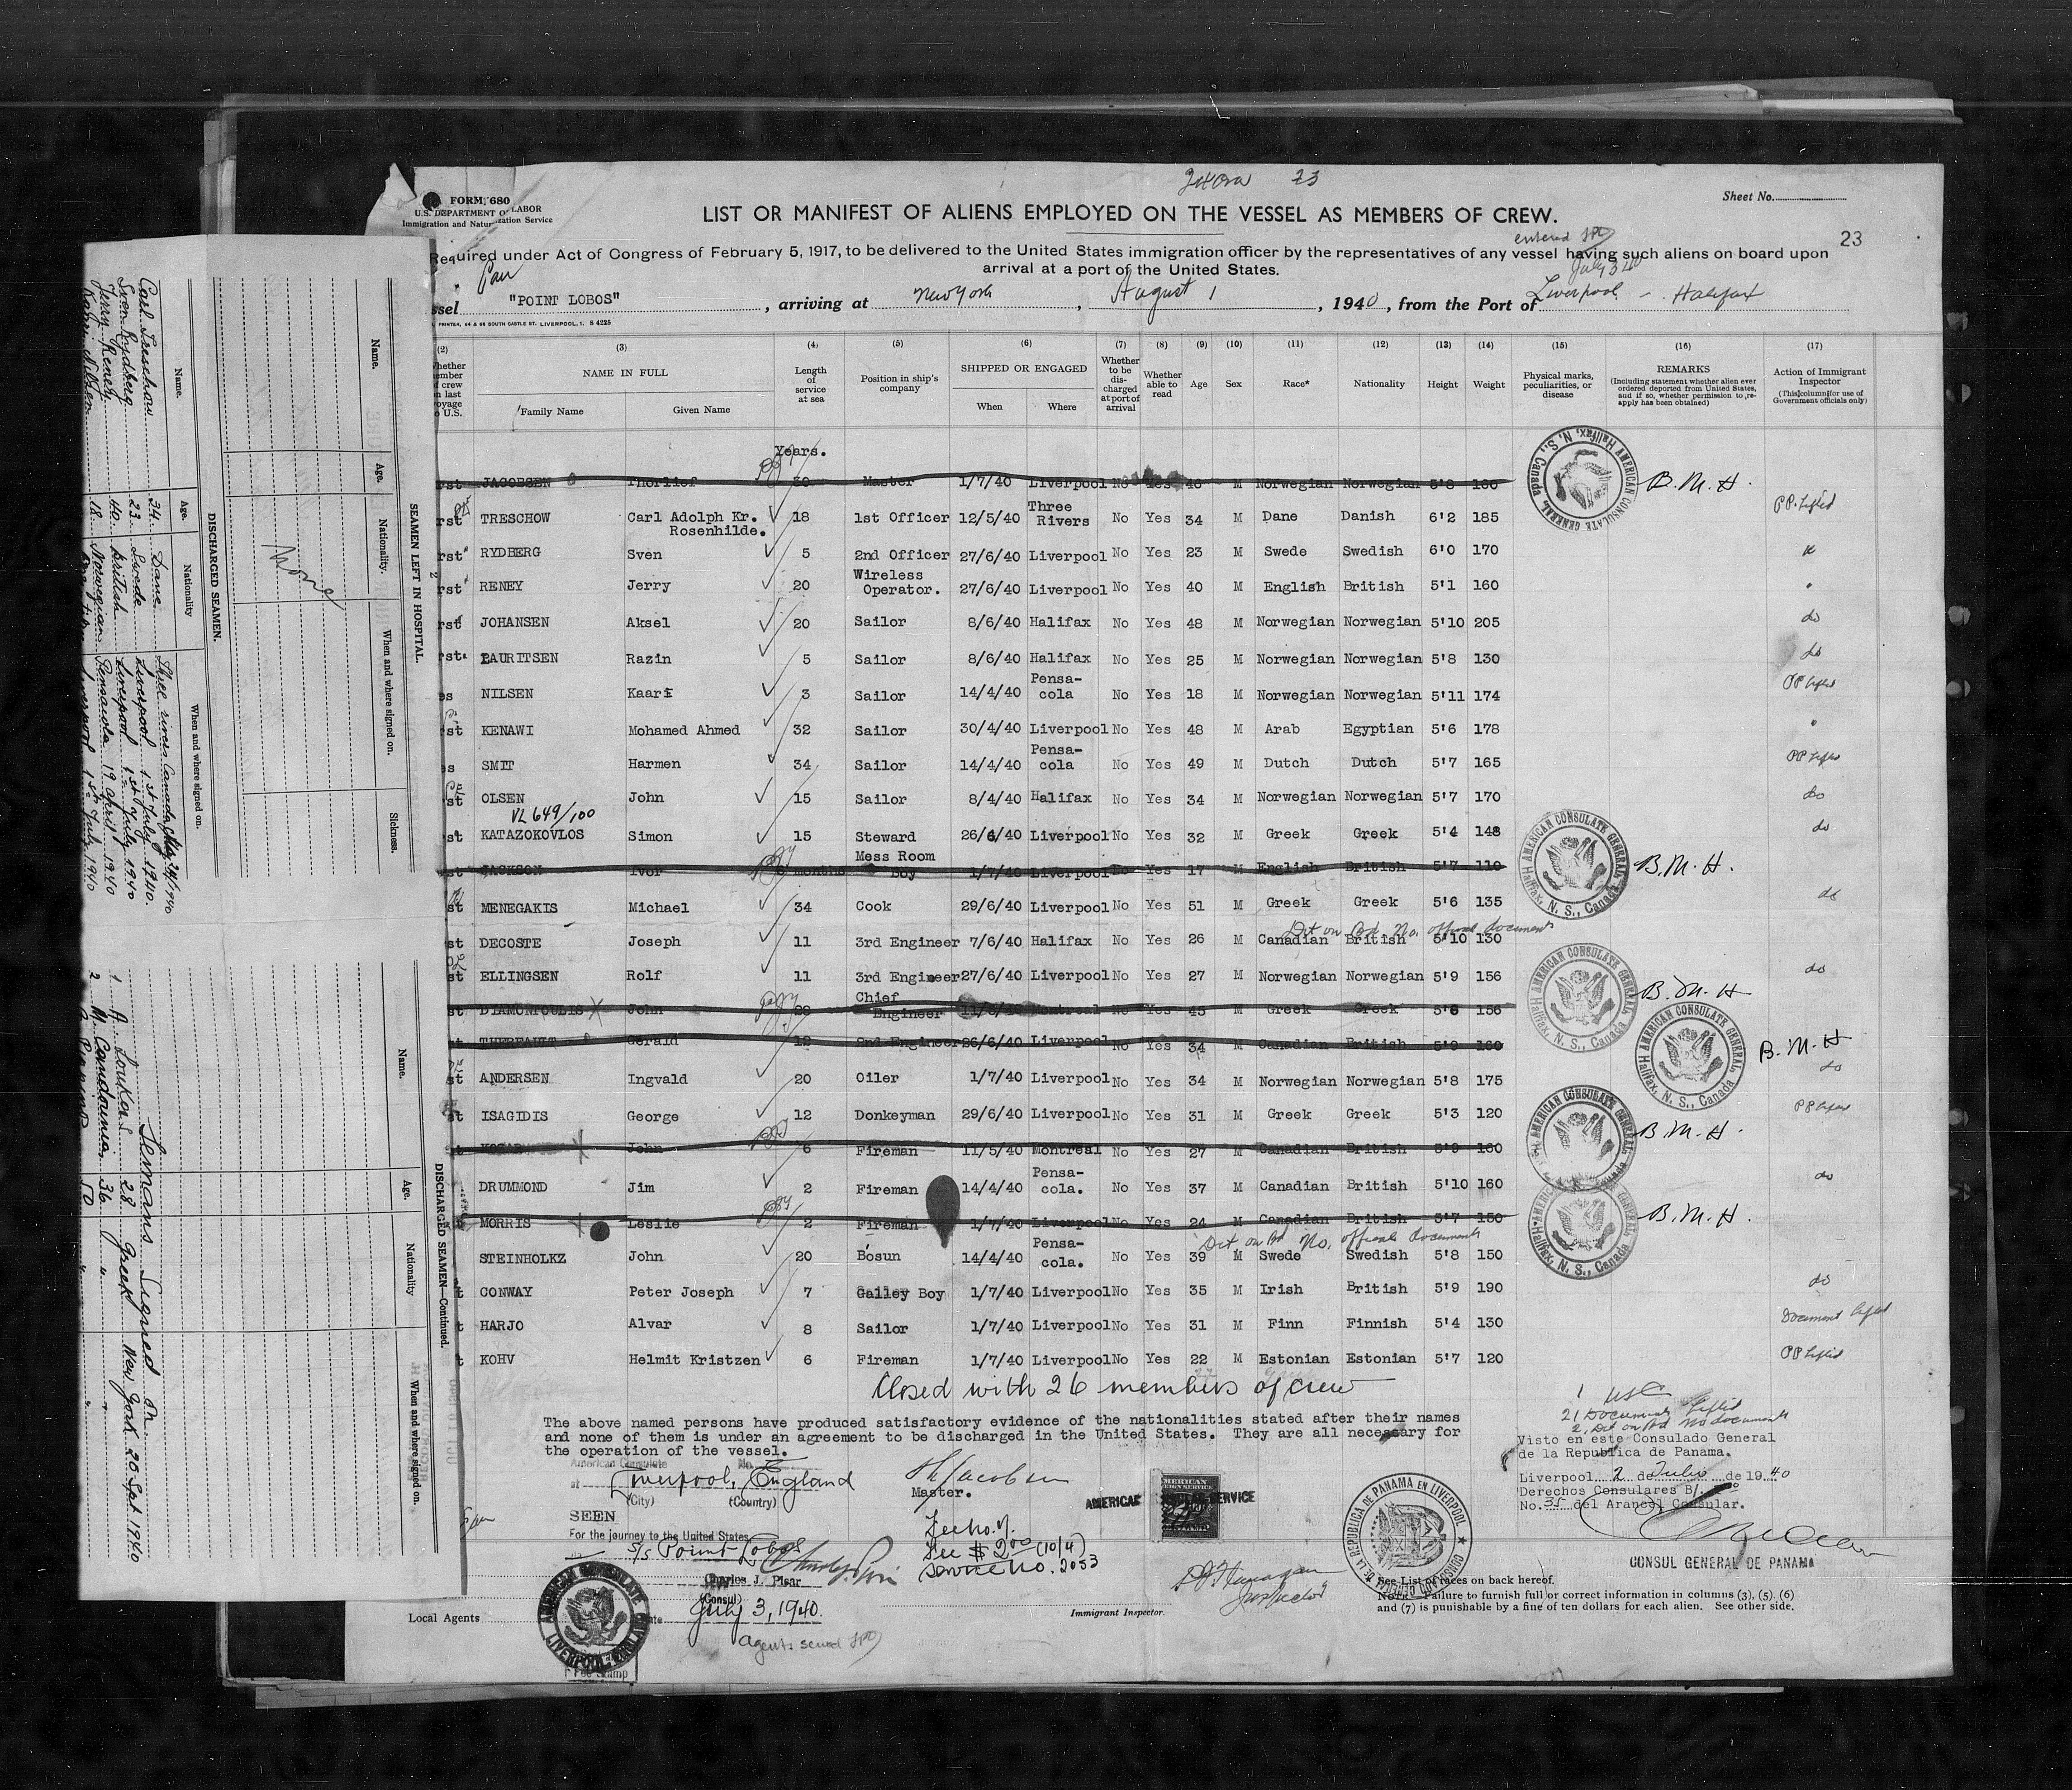 23
FORM 680
U.S. DEPARTMENT OF LABOR
Immigration and Naturalization Service
Sheet No.
LIST OR MANIFEST OF ALIENS EMPLOYED ON THE VESSEL AS MEMBERS OF CREW.
entered
23
Required under Act of Congress of February 5, 1917, to be delivered to the United States immigration officer by the representatives of any vessel having such aliens on board upon
arrival at a port of the United States.
Pan
July 3 40
ssel "POINT LOBOS", arriving at New York, August 1, 1940, from the Port of Liverpool - Halifax
PRINTER, 64 & 68 SOUTH CASTLE ST. LIVERPOOL, 1. S 4225
(2) (3) (4) (5) (6) (7) (8) (9) (10) (11) (12) (13) (14) (15) (16) (17)
NAME IN FULL
Family Name Given Name
Length of service at sea
Position in ship's company
SHIPPED OR ENGAGED
When Where
Whether to be discharged at port of arrival
Whether able to read
Age Sex Race* Nationality Height Weight
Physical marks, peculiarities, or disease
REMARKS
(Including statement whether alien ever ordered deported from United States, and if so, whether permission to reapply has been obtained)
Action of Immigrant Inspector
(This column for use of Government officials only)
Years.
rst JACOBSEN Thorlief 30 Master 1/7/40 Liverpool No Yes 40 M Norwegian Norwegian 5'8 160 B.M.H.
rst TRESCHOW Carl Adolph Kr. Rosenhilde. 18 1st Officer 12/5/40 Three Rivers No Yes 34 M Dane Danish 6'2 185 PP. Lifted
rst RYDBERG Sven 5 2nd Officer 27/6/40 Liverpool No Yes 23 M Swede Swedish 6'0 170
rst RENEY Jerry 20 Wireless Operator. 27/6/40 Liverpool No Yes 40 M English British 5'1 160
rst JOHANSEN Aksel 20 Sailor 8/6/40 Halifax No Yes 48 M Norwegian Norwegian 5'10 205 do
rst. LAURITSEN Razin 5 Sailor 8/6/40 Halifax No Yes 25 M Norwegian Norwegian 5'8 130 do
es NILSEN Kaari 3 Sailor 14/4/40 Pensa-cola No Yes 18 M Norwegian Norwegian 5'11 174 PP Lifted
st KENAWI Mohamed Ahmed 32 Sailor 30/4/40 Liverpool No Yes 48 M Arab Egyptian 5'6 178 "
es SMIT Harmen 34 Sailor 14/4/40 Pensa-cola No Yes 49 M Dutch Dutch 5'7 165 PP Lifted
st OLSEN John 15 Sailor 8/4/40 Halifax No Yes 34 M Norwegian Norwegian 5'7 170 do
VL 649/100
st KATAZOKOVLOS Simon 15 Steward 26/6/40 Liverpool No Yes 32 M Greek Greek 5'4 148 do
st JACKSON Ivor 6 months Mess Room Boy 1/7/40 Liverpool No Yes 17 M English British 5'7 110 B.M.H.
st MENEGAKIS Michael 34 Cook 29/6/40 Liverpool No Yes 51 M Greek Greek 5'6 135 do
Det on Bd. No. official documents
st DECOSTE Joseph 11 3rd Engineer 7/6/40 Halifax No Yes 26 M Canadian British 5'10 130
st ELLINGSEN Rolf 11 3rd Engineer 27/6/40 Liverpool No Yes 27 M Norwegian Norwegian 5'9 156 do
st DIAMONTOULIS John 28 Chief Engineer 11/5/40 Montreal No Yes 45 M Greek Greek 5'6 156 B.M.H
st THEREAULT Gerald 12 2nd Engineer 26/6/40 Liverpool No Yes 34 M Canadian British 5'9 160 B.M.H
st ANDERSEN Ingvald 20 Oiler 1/7/40 Liverpool No Yes 34 M Norwegian Norwegian 5'8 175 do
st ISAGIDIS George 12 Donkeyman 29/6/40 Liverpool No Yes 31 M Greek Greek 5'3 120 PP Lifted
t KOZAR John 6 Fireman 11/5/40 Montreal No Yes 27 M Canadian British 5'9 160 B.M.H.
DRUMMOND Jim 2 Fireman 14/4/40 Pensa-cola. No Yes 37 M Canadian British 5'10 160 do
t MORRIS Leslie 2 Fireman 1/7/40 Liverpool No Yes 24 M Canadian British 5'7 150 B.M.H.
Det on Bd No. official documents
STEINHOLKZ John 20 Bosun 14/4/40 Pensa-cola. No Yes 39 M Swede Swedish 5'8 150
t CONWAY Peter Joseph 7 Galley Boy 1/7/40 Liverpool No Yes 35 M Irish British 5'9 190 do
t HARJO Alvar 8 Sailor 1/7/40 Liverpool No Yes 31 M Finn Finnish 5'4 130 Document Lifted
t KOHV Helmit Kristzen 6 Fireman 1/7/40 Liverpool No Yes 22 M Estonian Estonian 5'7 120 PP Lifted
Closed with 26 members of crew
The above named persons have produced satisfactory evidence of the nationalities stated after their names
and none of them is under an agreement to be discharged in the United States. They are all necessary for
the operation of the vessel.
1 USC
21 Documents Lifted
2, Det on Bd No documents
Visto en este Consulado General
de la Republica de Panama.
Liverpool 2 de Julio de 1940
Derechos Consulares B/.
No. 35 del Arancel Consular.
CONSUL GENERAL DE PANAMA
American Consulate No.
at Liverpool, England
(City) (Country)
Master.
SEEN
For the journey to the United States
S/S Point Lobos
Charles J. Pisar
(Consul)
July 3, 1940
Fee No. 7.
Fee $ 2.00 (10/4)
Service No. 2053
AMERICAN SERVICE
REPUBLICA DE PANAMA EN LIVERPOOL
Inspector
Immigrant Inspector.
See List of races on back hereof.
NOTE. Failure to furnish full or correct information in columns (3), (5), (6)
and (7) is punishable by a fine of ten dollars for each alien. See other side.
Local Agents
Date
agents served
AMERICAN CONSULATE LIVERPOOL-ENGLAND
Fee Stamp
AMERICAN CONSULATE GENERAL, Halifax, N. S., Canada
AMERICAN CONSULATE GENERAL, Halifax, N. S., Canada
AMERICAN CONSULATE GENERAL, Halifax, N. S., Canada
AMERICAN CONSULATE GENERAL, Halifax, N. S., Canada
AMERICAN CONSULATE GENERAL, Halifax, N. S., Canada
AMERICAN CONSULATE GENERAL, Halifax, N. S., Canada
SEAMEN LEFT IN HOSPITAL.
Name. Age. Nationality. When and where signed on. Sickness.
None
DISCHARGED SEAMEN.
Name. Age. Nationality When and where signed on.
Carl Treschow 34 Dane Three rivers Canada
Sven Rydberg 23 Swede Liverpool 1st July 1940.
Jerry Reney 40 British Liverpool 1st July 1940
Kaari Nilsen 18 Norwegian Pensacola 19 April 1940
DISCHARGED SEAMEN—Continued.
Name. Age. Nationality When and where signed on.
Semans Signed on
1 A. Loukas 28 Greek New York 20 Sept 1940
2 M. Candounia 36 " "